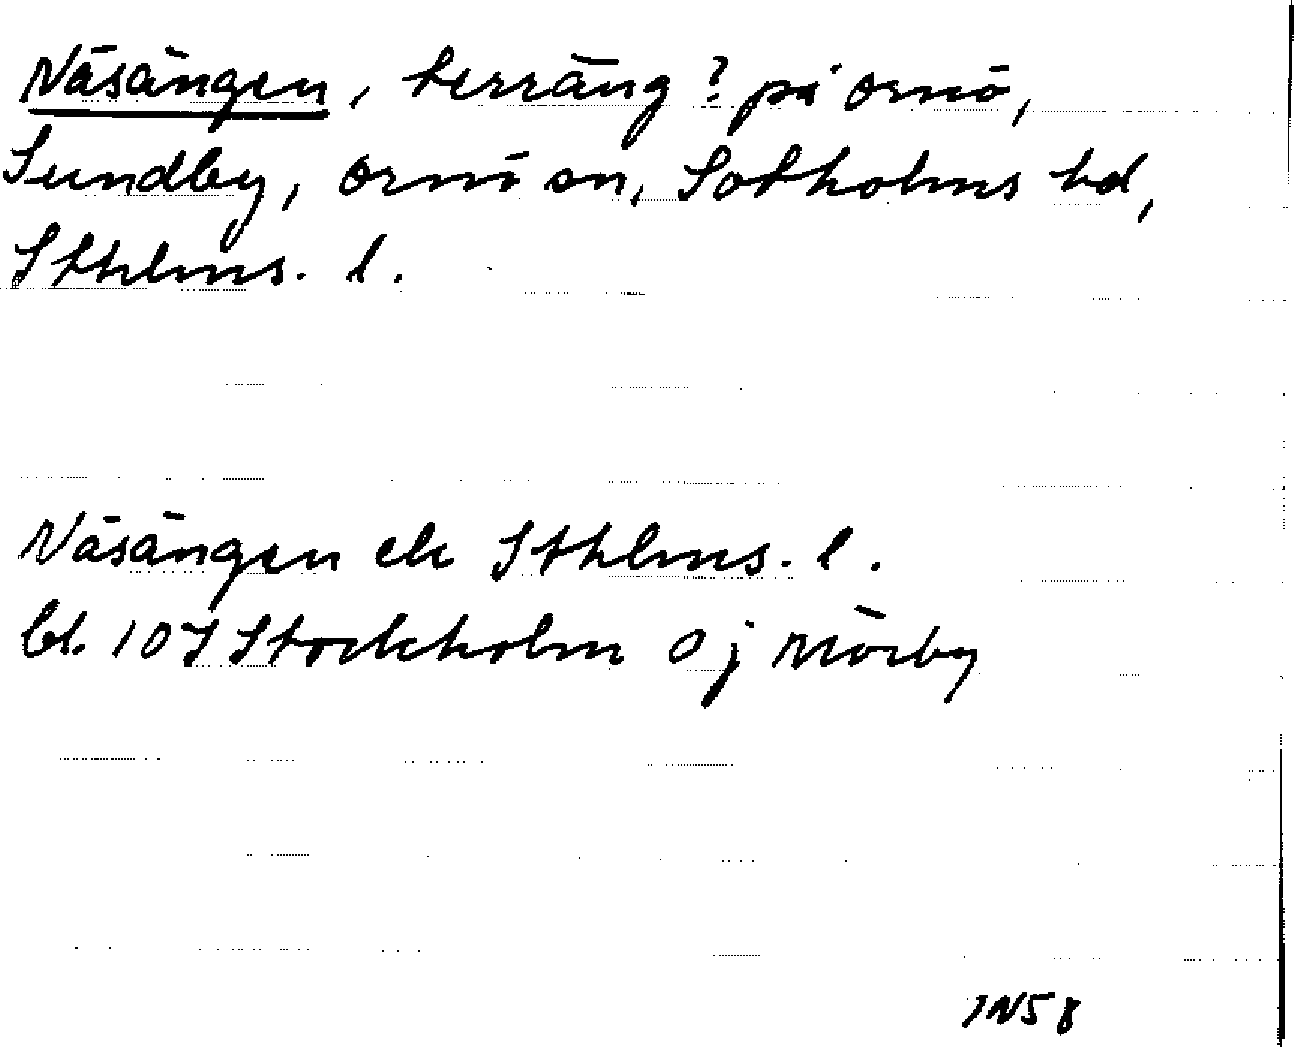 Näsängen, terräng? på Ornö,
Sundby, Ornö sn, Sotholms hd,
Sthlms. l.
Näsängen ek Sthlms. l.
bl. 10J Stockholm Oj Mörby
IN58